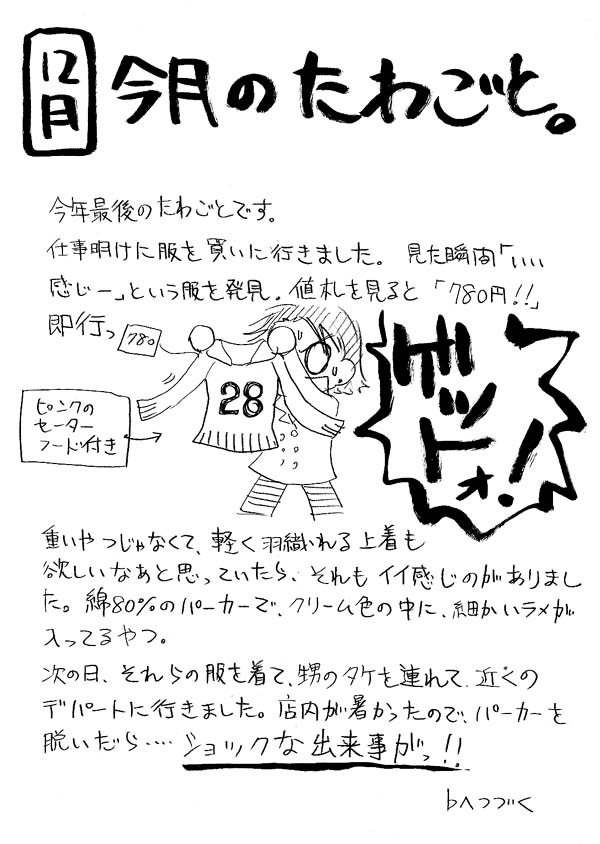 12月
今月のたわごと。
今年最後のたわごとです。
仕事明けに服を買いに行きました。 見た瞬間「いい
感じー」という服を発見。値札を見ると「780円!!」
即行っ
780
ゲットォ!
28
ピンクの
セーター
フード付き
重いやつじゃなくて、軽く羽織れる上着も
欲しいなあと思っていたら、それもイイ感じのがありまし
た。綿80%のパーカーで、クリーム色の中に、細かいラメが
入ってるやつ。
次の日、それらの服を着て、甥のタケを連れて、近くの
デパートに行きました。店内が暑かったので、パーカーを
脱いだら‥‥ショックな出来事がっ!!
bへつづく